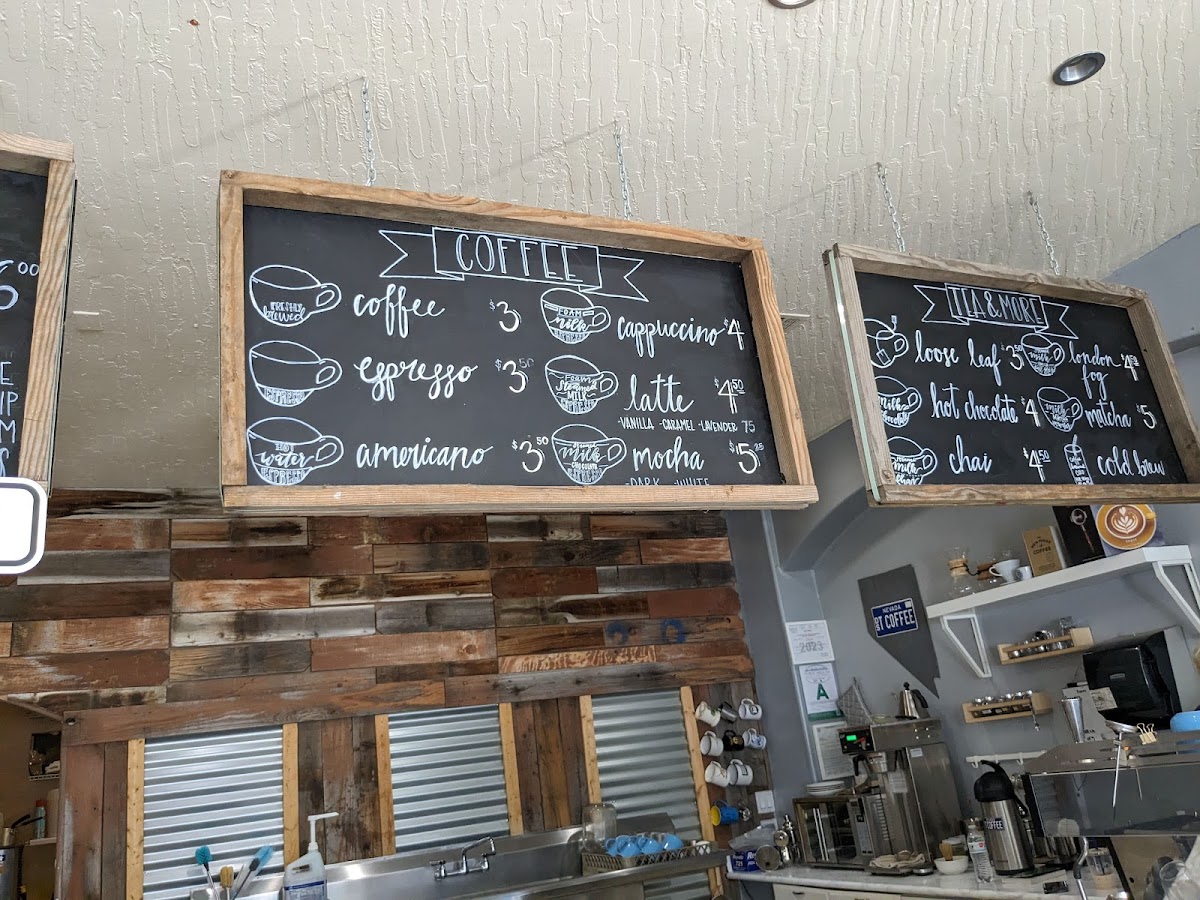 00
COFFEE
FRESHLY brewed
coffee $3
espresso
espresso $3.50
HOT water ESPRESSO
americano $3.50
FOAM milk ESPRESSO
cappuccino $4
FOAM Steamed MILK ESPRESSO
latte $4.50
-VANILLA -CARAMEL -LAVENDER 75
milk CHOCOLATE ESPRESSO
mocha $5.25
-DARK -WHITE
TEA & MORE
loose leaf $3.50
london fog $4.50
milk
hot chocolate $4
milk
matcha $5
milk chai
chai $4.50
cold brew
NEVADA
1ST COFFEE
2023
A
COFFEE
COFFEE